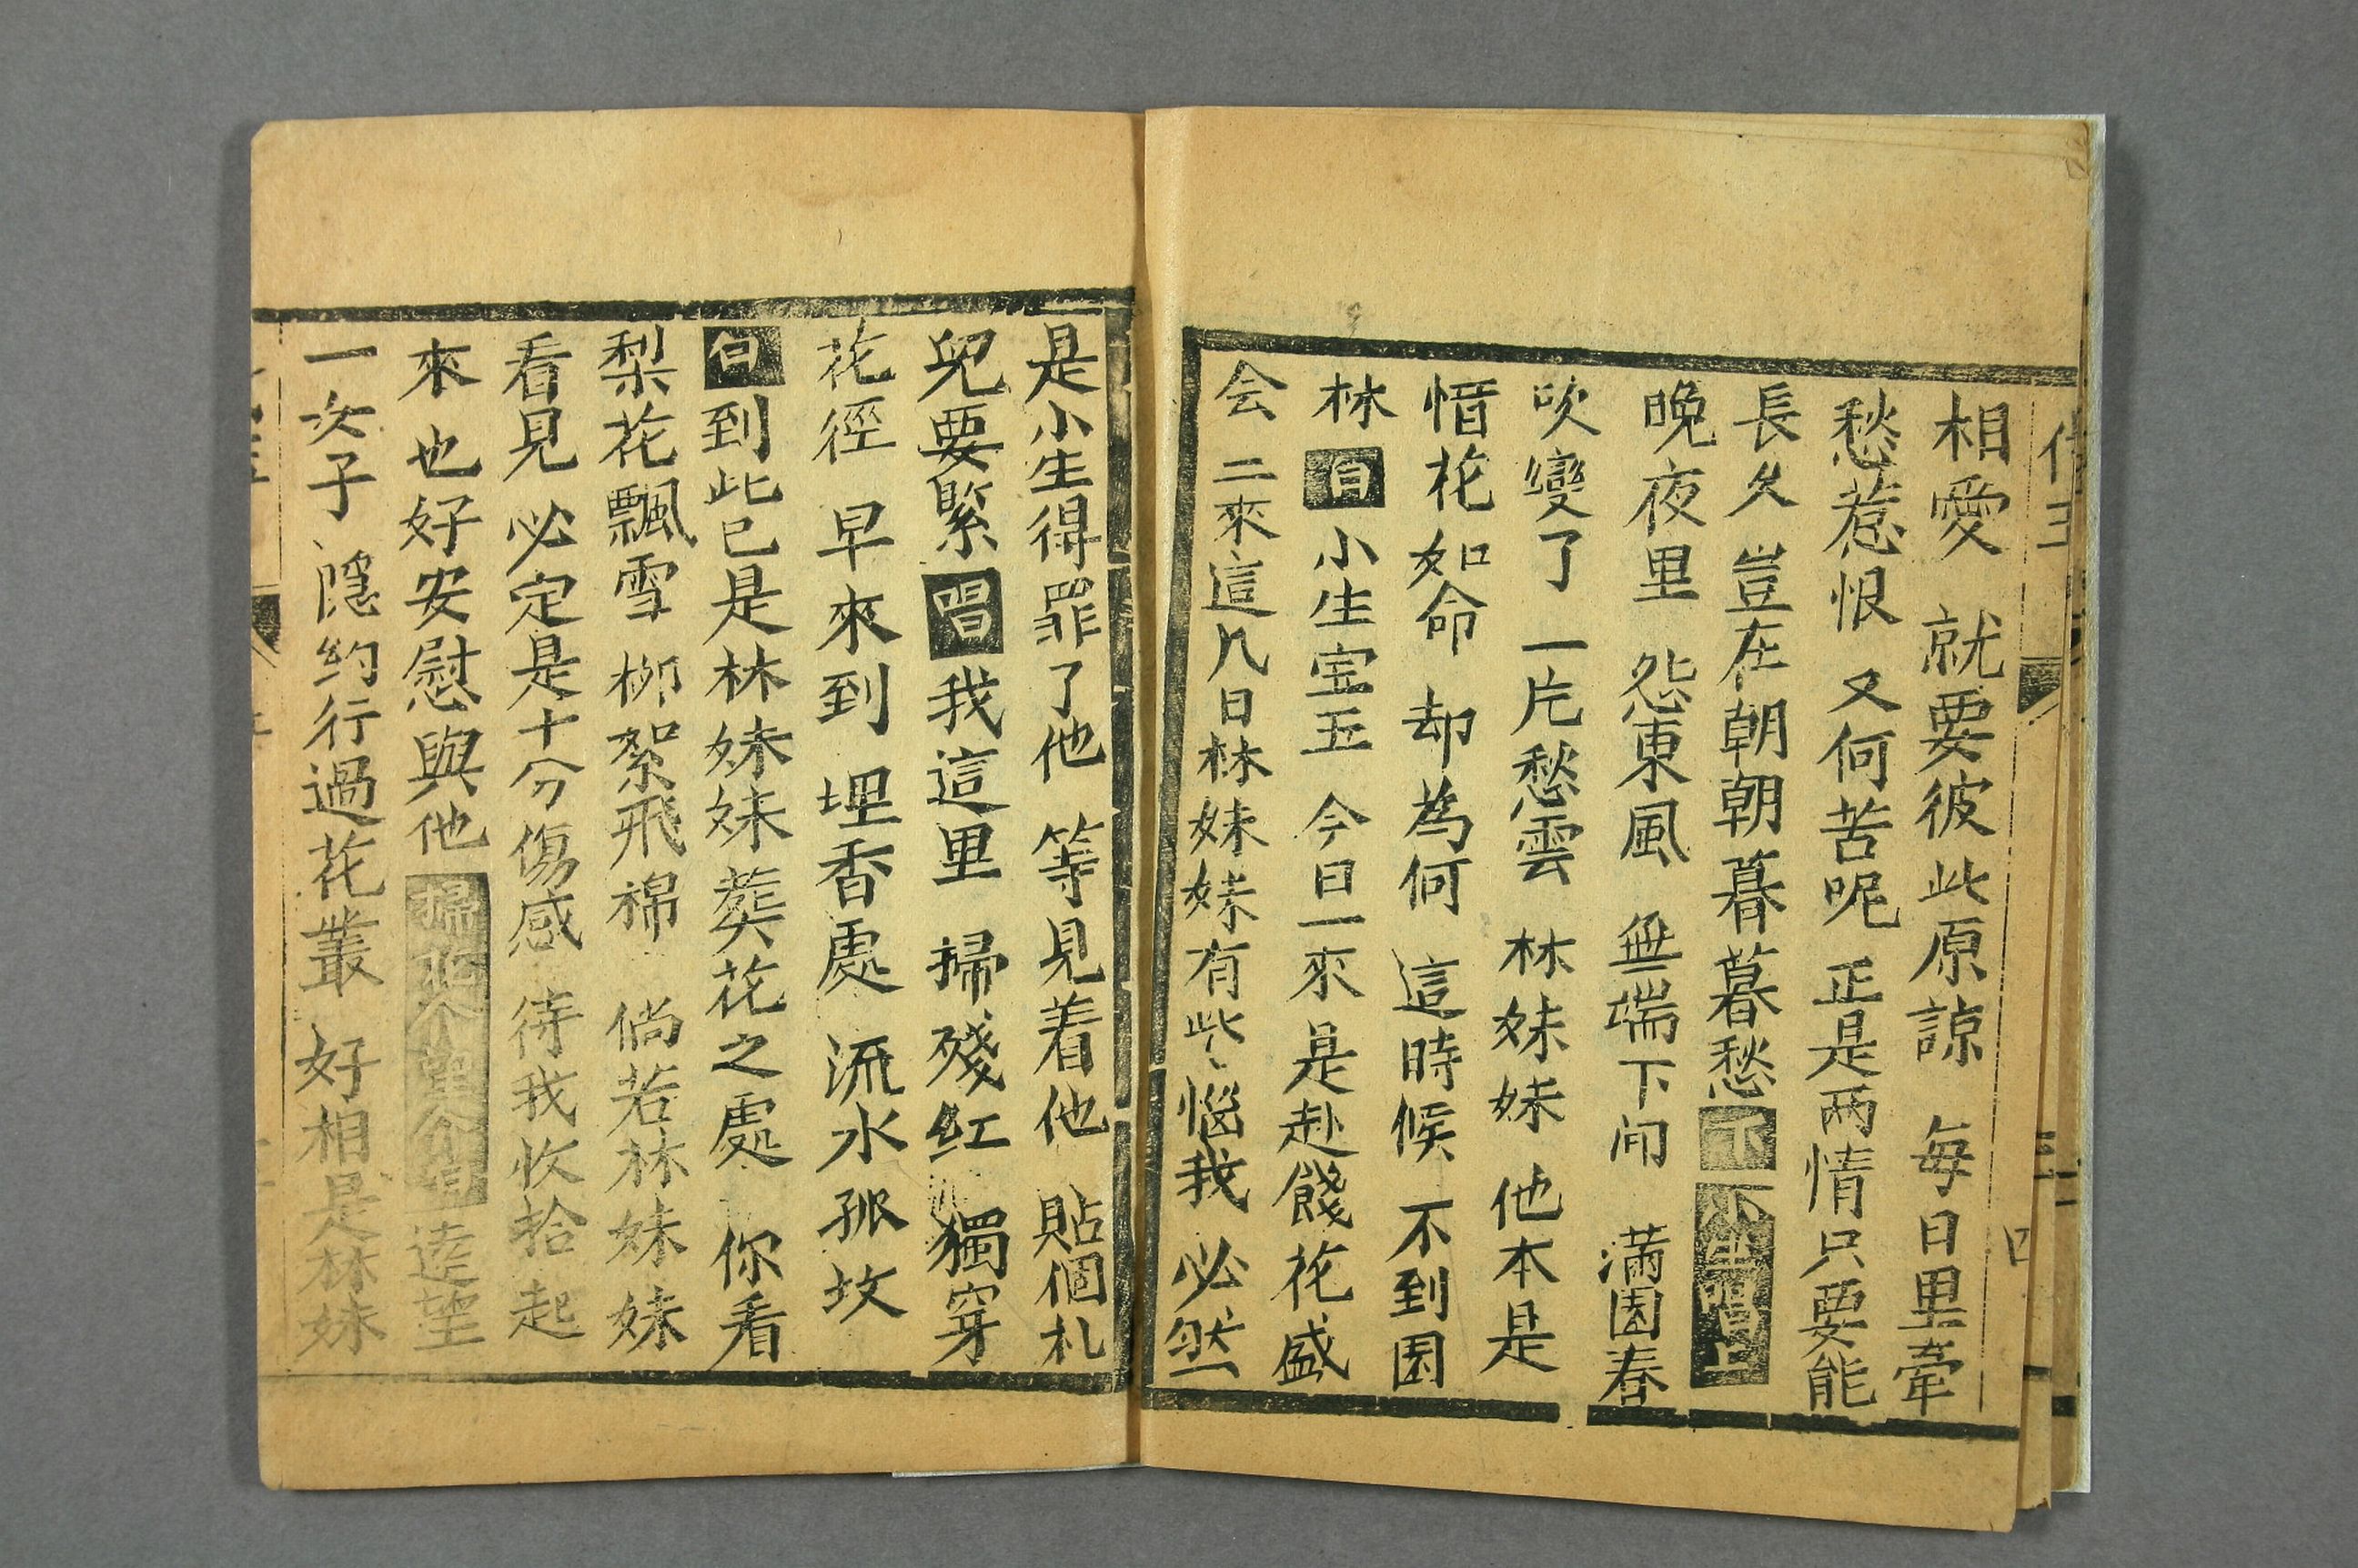 相愛 就要彼此原諒 每日里牽
愁惹恨 又何苦呢 正是两情只要能
長久 豈在朝朝暮暮愁 下 小生唱上
晚夜里 怨東風 無端下间 满园春
吹變了 一片愁雲 林妹妹 他本是
惜花如命 却為何 這時候 不到园
林 白 小生宝玉 今日一來 是赴餞花盛
会 二來這几日林妹妹有些、惱我 必然
是小生得罪了他 等見着他 貼個札
兒要緊 唱 我這里 掃殘红 獨穿
花徑 早來到 埋香處 流水孤坟
白 到此已是林妹妹葬花之處 你看
梨花飄雪 柳絮飛棉 倘若林妹妹
看見 必定是十分傷感 待我收拾起
來也好安慰與他 掃 望介唱 遠望
一女子 隱约行過花叢 好相是林妹